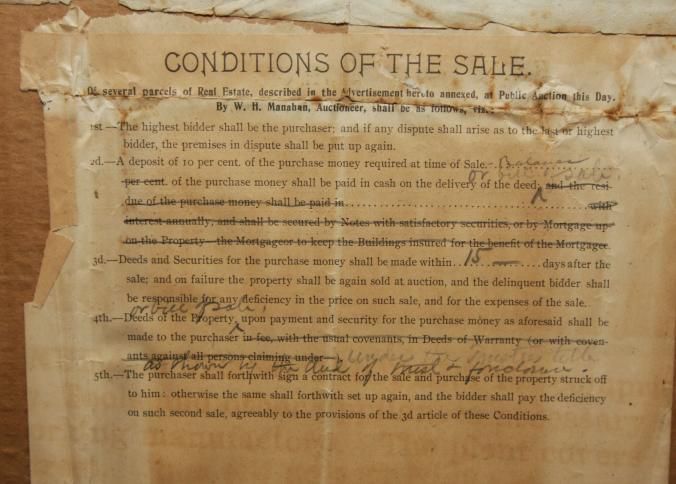 CONDITIONS OF THE SALE.
Of several parcels of Real Estate, described in the Advertisement hereto annexed, at Public Auction this Day.
By W. H. Manahan, Auctioneer, shall be as follows, viz.:
1st—The highest bidder shall be the purchaser; and if any dispute shall arise as to the last or highest
bidder, the premises in dispute shall be put up again.
2d.—A deposit of 10 per cent. of the purchase money required at time of Sale. Balance
or bill of sale.
per cent. of the purchase money shall be paid in cash on the delivery of the deed; and the resi-
due of the purchase money shall be paid in with
interest annually, and shall be secured by Notes with satisfactory securities, or by Mortgage up-
on the Property—the Mortgageor to keep the Buildings insured for the benefit of the Mortgagee.
3d.—Deeds and Securities for the purchase money shall be made within 15 — days after the
sale; and on failure the property shall be again sold at auction, and the delinquent bidder shall
be responsible for any deficiency in the price on such sale, and for the expenses of the sale.
or bill of sale,
4th.—Deeds of the Property, upon payment and security for the purchase money as aforesaid shall be
made to the purchaser in fee, with the usual covenants, in Deeds of Warranty (or with coven-
ants against all persons claiming under—), under the trustee title
as shown by the deed of trust & foreclosure.
5th.—The purchaser shall forthwith sign a contract for the sale and purchase of the property struck off
to him: otherwise the same shall forthwith set up again, and the bidder shall pay the deficiency
on such second sale, agreeably to the provisions of the 3d article of these Conditions.